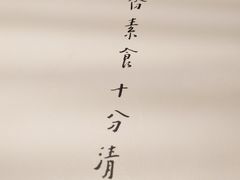 素食十分清